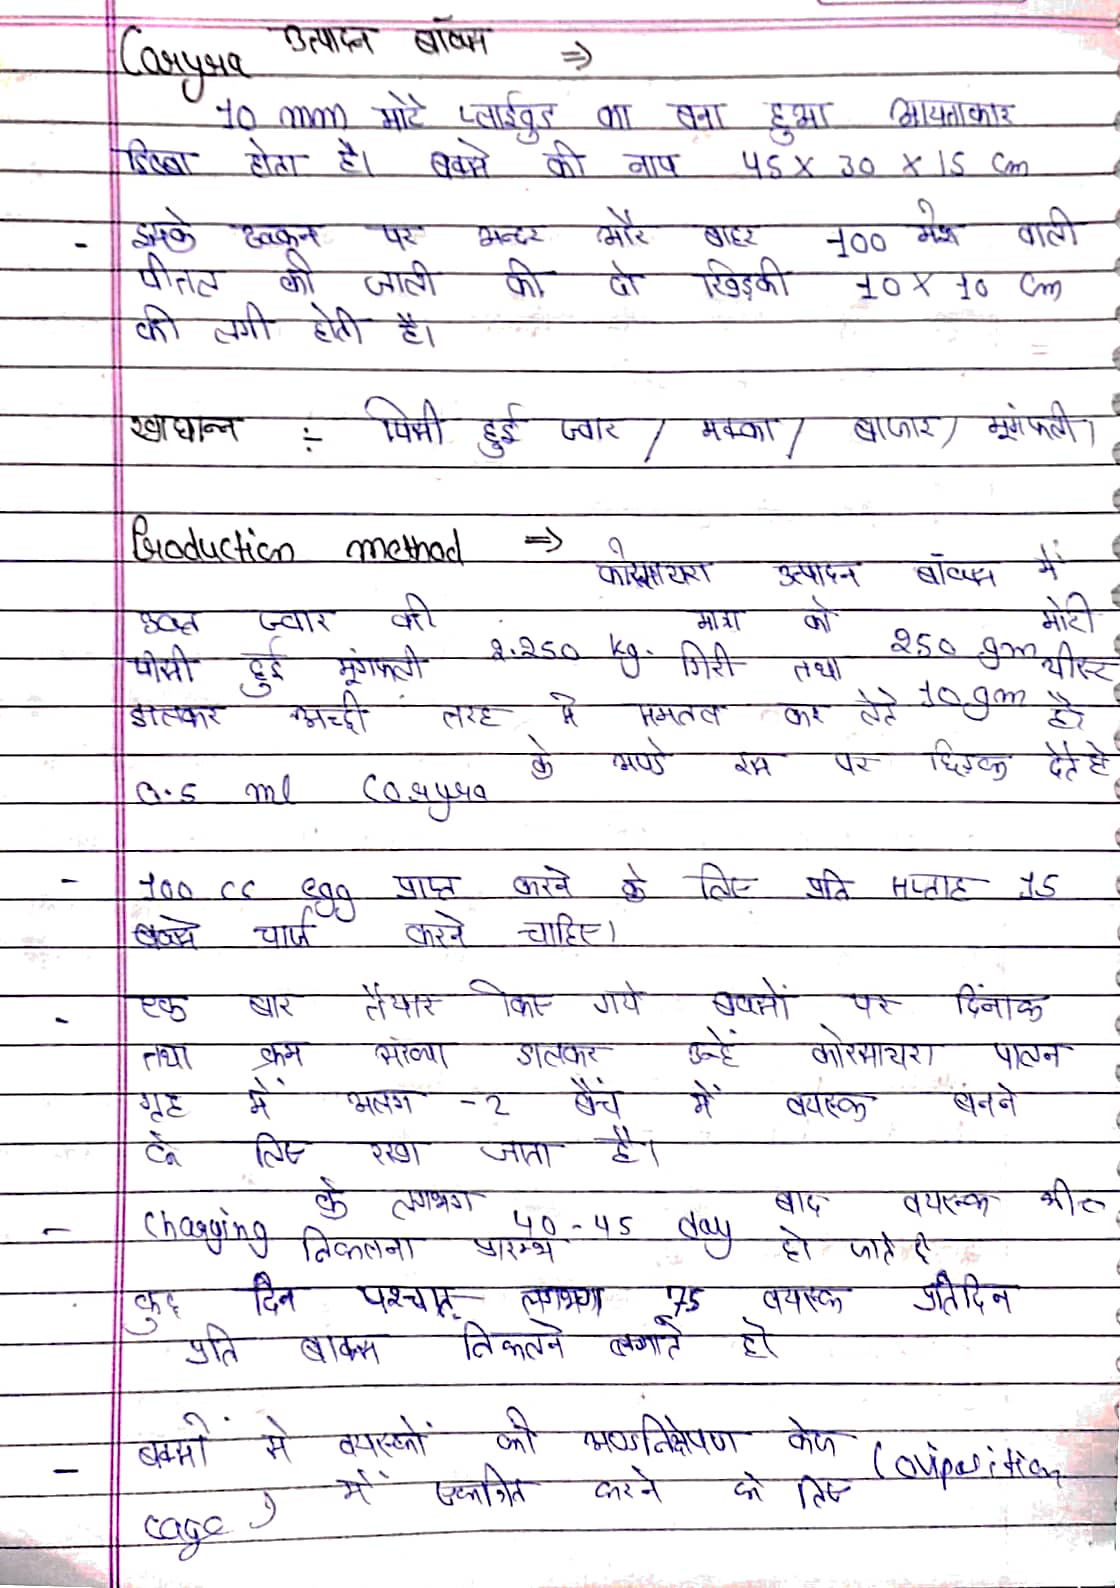 Coryra उत्पादन बॉक्स ⇒
10 mm मोटे प्लाईवुड का बना हुआ आयताकार
डिब्बा होता है। बक्से की नाप 45 X 30 X 15 cm
- इसके ढक्कन पर अन्दर और बाहर 100 मेश वाली
पीतल की जाली की दो खिड़की 10 X 10 cm
की लगी होती है।
खाद्यान्न ÷ पिसी हुई ज्वार / मक्का / बाजार / मूंगफली।
Production method ⇒ कोरसायरा उत्पादन बॉक्स में
उक्त ज्वार की 2.250 kg. मात्रा को मोटी
पीसी हुई मूंगफली गिरी 250 gm तथा यीस्ट
डालकर अच्छी तरह से समतल कर लेते 10 gm है।
0.5 ml Coryra के अण्डे इस पर छिड़क देते है
- 100 cc egg प्राप्त करने के लिए प्रति सप्ताह 15
बक्से चार्ज करने चाहिए।
- एक बार तैयार किए गये बक्सों पर दिनांक
तथा क्रम संख्या डालकर उन्हें कोरसायरा पालन
गृह में अलग -2 बैंच में वयस्क बनने
के लिए रखा जाता है।
- Charging के लगभग 40-45 day बाद वयस्क
निकलना प्रारम्भ हो जाते है
कुछ दिन पश्चात् लगभग 75 वयस्क प्रतिदिन
प्रति बाक्स निकलने लगाते है।
- बक्सों से वयस्कों को अण्डनिक्षेपण केज (oviposition
cage) में एकत्रित करने के लिए